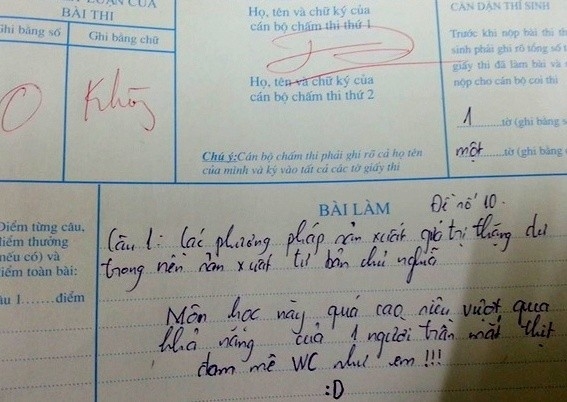 LUẬN CỦA
BÀI THI
Ghi bằng số
Ghi bằng chữ
0
Không
Họ, tên và chữ ký của
cán bộ chấm thi thứ 1
Họ, tên và chữ ký của
cán bộ chấm thi thứ 2
Chú ý:Cán bộ chấm thi phải ghi rõ cả họ tên
của mình và ký vào tất cả các tờ giấy thi
CĂN DẶN THÍ SINH
Trước khi nộp bài thi th
sinh phải ghi rõ tổng số t
giấy thi đã làm bài và
nộp cho cán bộ coi thi
1......tờ (ghi bằng s
một......tờ (ghi bằng
Điểm từng câu,
điểm thưởng
(nếu có) và
điểm toàn bài:
âu 1......điểm
BÀI LÀM
Đề số 10.
Câu 1: Các phương pháp sản xuất giá trị thặng dư
trong nền sản xuất tư bản chủ nghĩa
Môn học này quá cao siêu vượt qua
khả năng của 1 người trần mắt thịt
đam mê WC như em !!!
:D